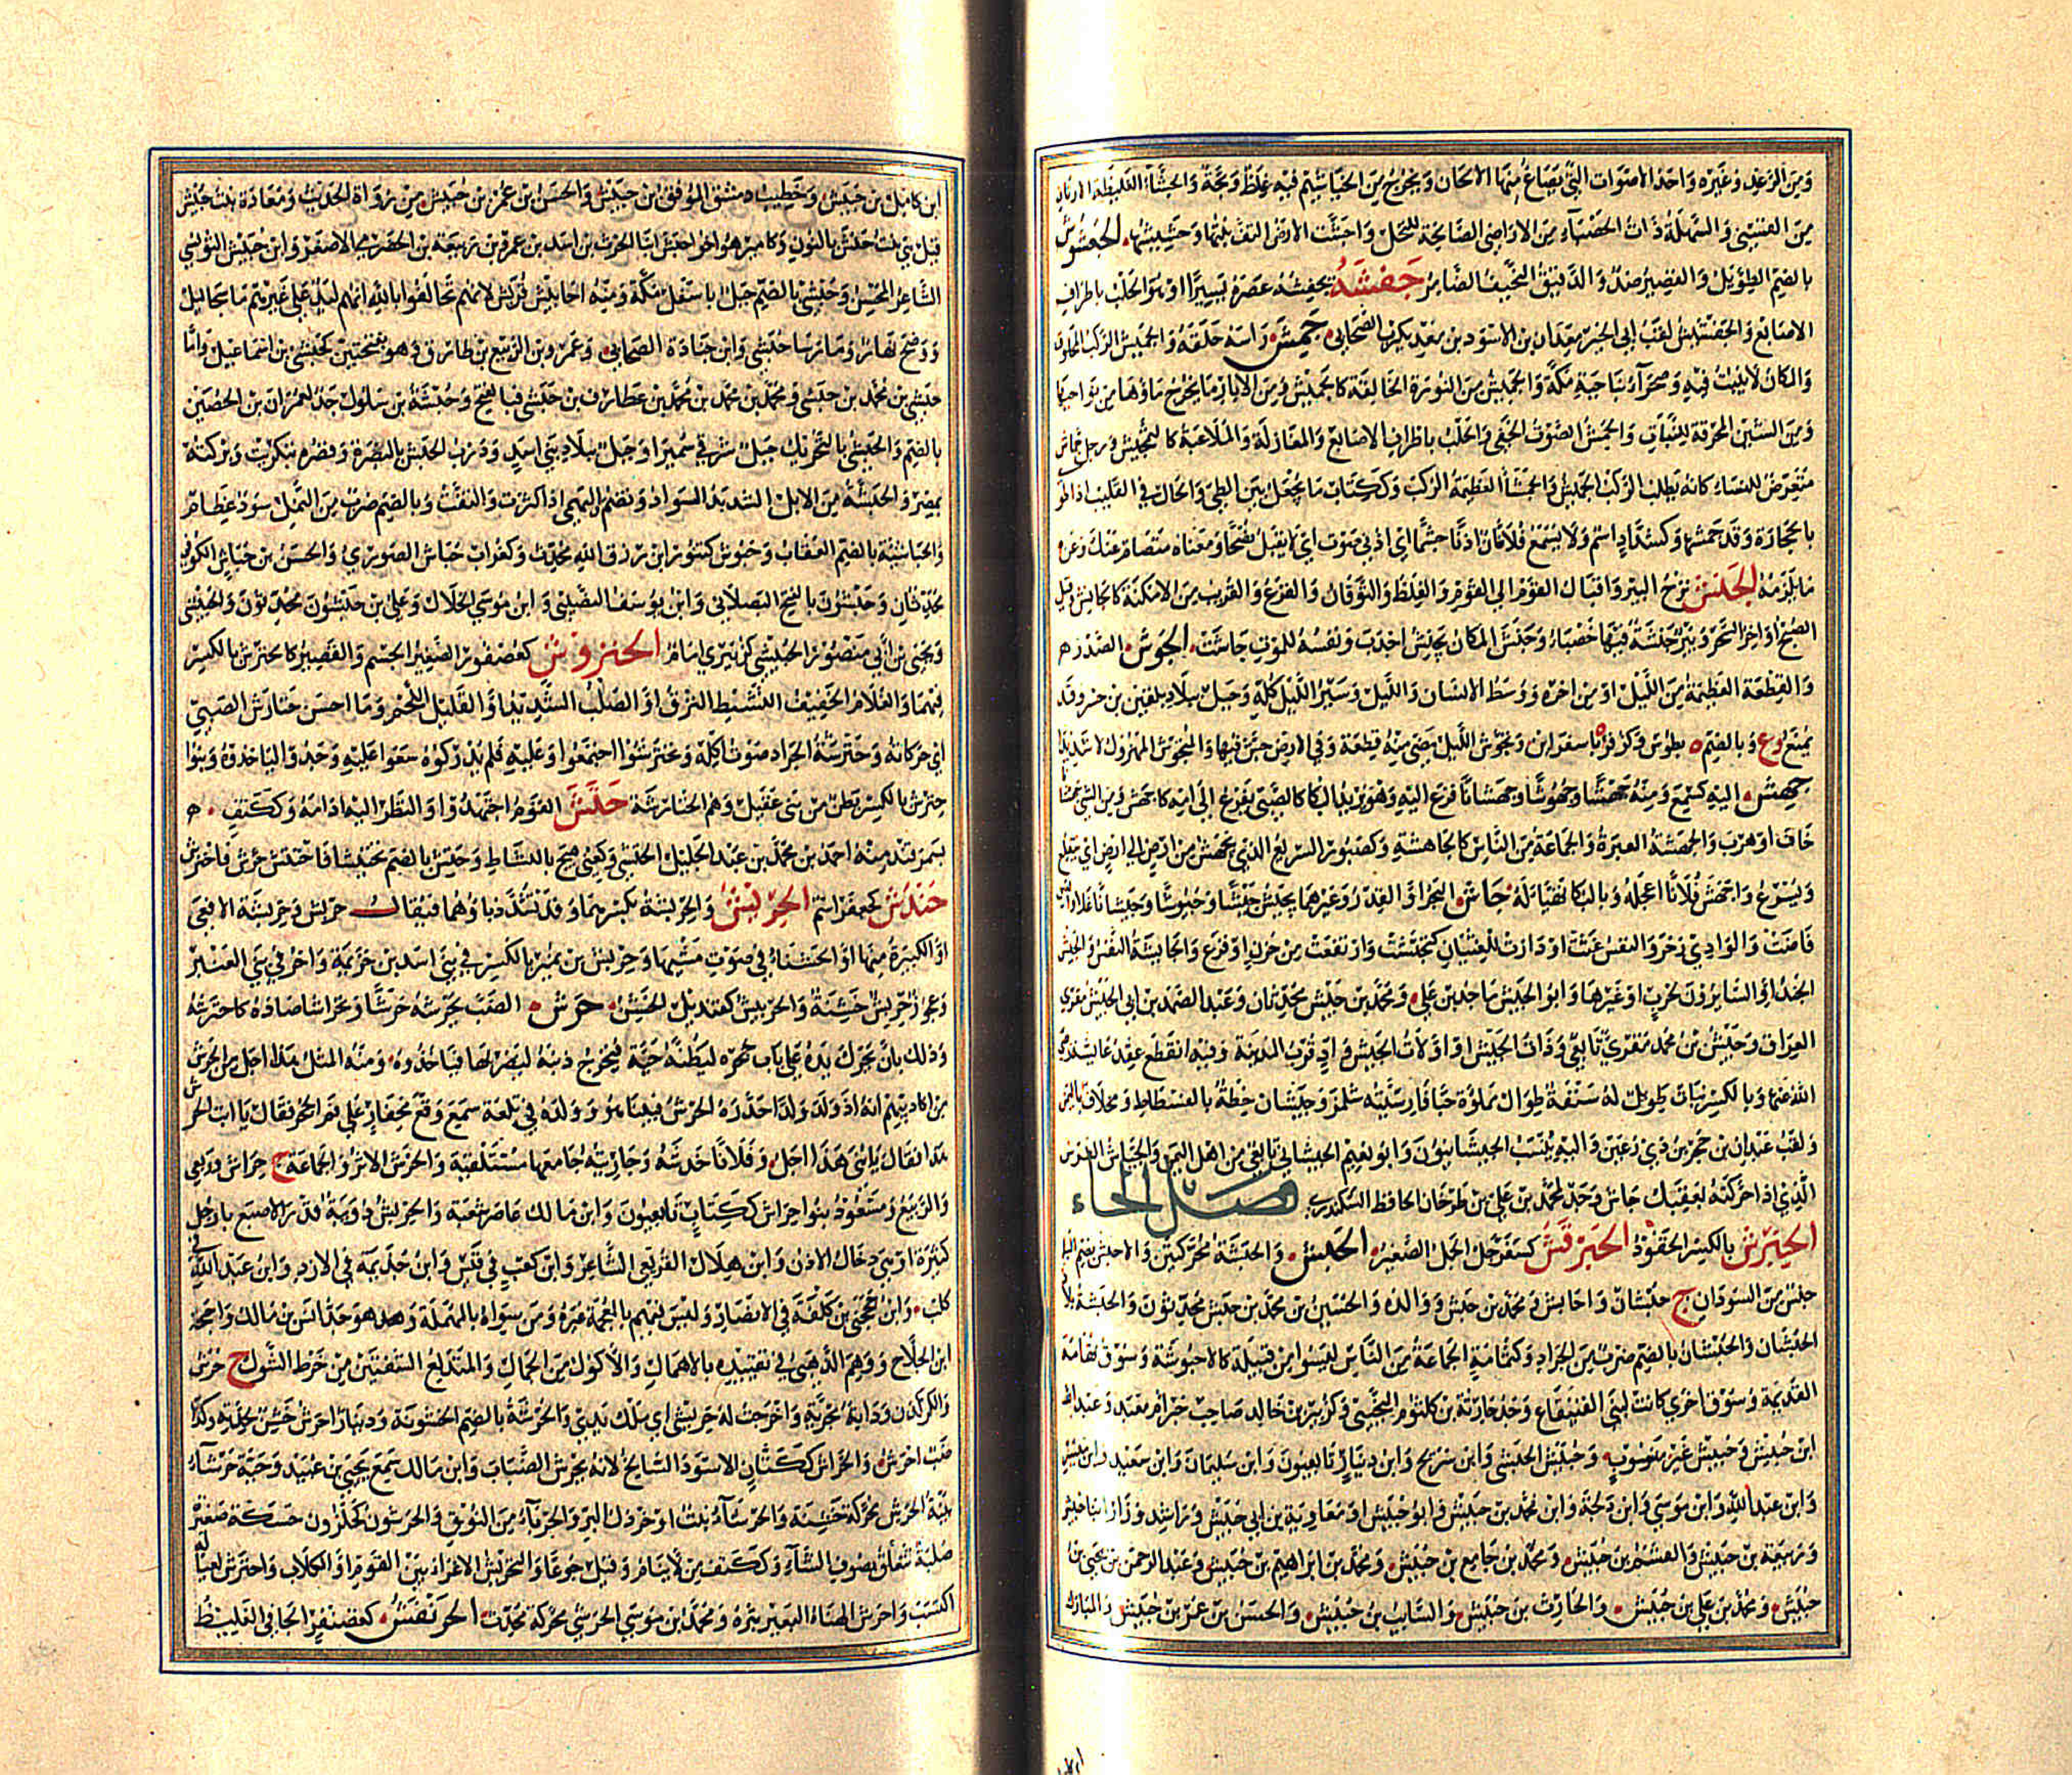 ومن الرعد وغيره واحد الاصوات التي يصاغ منها الالحان ويخرج من الخياشيم فيه غلظ وبحة والجشاء الغليظة الارنان
من القسي والسهلة ذات الحصباء من الاراضي الصالحة للنخل واجشت الارض التف نبتها وحشيشها الجعشوش
بالضم الطويل والقصير ضد والدقيق النحيف الضامر جفشه يجفشه عصره يسيرا او هو الحلب باطراف
الاصابع والجفشيش لقب ابي الخير معدان بن الاسود بن معديكرب الصحابي جمش راسه حلقه والجميش الركب المحلوق
والمكان لا ينبت فيه وصحراء بناحية مكة والجميش من النورة الحالقة كالجميش ومن الابار ما يخرج ماؤها من نواحيها
ومن السنين المحرقة للنبات والجمش الصوت الخفي والحلب باطراف الاصابع والمغازلة والملاعبة كالتجميش ورجل جماش
متعرض للنساء كانه يطلب الركب الجميش والجمشاء العظيمة الركب وككتاب ما يجعل بين الطي والجال في القليب اذا طوي
بالحجارة وقد جمشها وكشداد اسم ولا يسمع فلان اذنا جمشا اي ادنى صوت اي لا يقبل نصحا ومعناه متصام عنك وعن
ما يلزمه الجنش نزح البئر واقبال القوم الى القوم والغلظ والتوقان والفزع والقريب من الامكنة كالجانش وقبل
الصبح او اخر السحر وبئر جنشة فيها حصباء وجنش المكان يجنش اجدب ونفسه للموت جاشت الجوش الصدر
والقطعة العظيمة من الليل او من اخره ووسط الانسان والليل وسير الليل كله وجبل ببلاد بلقين بن جسر وقد
يمنع وع وبالضم ه بطوس وكزفر ه باسفراين وتجوش الليل مضى منه قطعة وفي الارض جش فيها والمتجوش المهزول لا شديدا
جهش اليه كسمع ومنع جهشا وجهوشا وجهشانا فزع اليه وهو يريد البكا كالصبي يفزع الى امه كاجهش ومن الشي جهشانا
خاف او هرب والجهشة العبرة والجماعة من الناس كالجاهشة وكصبور السريع الذي يجهش من ارض الى ارض اي يتقلع
ويسرع واجهش فلانا اعجله وبالبكا تهيا له جاش البحر او القدر وغيرهما يجيش جيشا وجيوشا وجيشانا غلا والعين
فاضت والوادي زخر والنفس غثت او دارت للغثيان كتجيشت وارتفعت من حزن او فزع والجايشة النفس والجيش
الجند او السايرون لحرب او غيرها وابو الجيش ماجد بن علي ومحمد بن جيش محدثان وعبد الصمد بن ابي الجيش مقري
العراق وجيش بن محمد مقري نافي وذات الجيش او اولات الجيش واد قرب المدينة وفيه انقطع عقد عايشة رضي
الله عنها وبالكسر نبات طويل له سنفة طوال مملوة حبا فارسيته شلمز وجيشان خطة بالفسطاط ومخلاف باليمن
ولقب عبدان بن حجر بن ذي رعين واليه ينسب الجيشانيون وابو تميم الجيشاني تابعي من اهل اليمن والجياش الفرس
الذي اذا حركته بعقبك جاش وجد لمحمد بن علي بن طرخان الحافظ السكندري فصل الحاء
الحبرش بالكسر الحقود الحبرقش كسفرجل الجمل الصغير الحبش والحبشة محركتين والاحبش بضم الباء
جنس من السودان ج حبشان واحابش ومحمد بن حبش ووالده والحسين بن محمد بن حبش محدثون والحبشة بلاد
الحبشان والحبشان بالضم ضرب من الجراد وكثمامة الجماعة من الناس ليسوا من قبيلة كالاحبوشة وسوق تهامة
القديمة وسوق اخرى كانت لبني القينقاع وجد حارثة بن كلثوم التجيبي وكزبير بن خالد صاحب خبر ام معبد وعبد الله
ابن حبيش وحبيش غير منسوب وحبيش الحبشي وابن سريج وابن دينار تابعيون وابن سليمان وابن سعيد وابن مبشر
وابن عبد الله وابن موسى وابن دلجة وابن محمد بن حبيش وابو حبيش او معاوية بن ابي حبيش وراشد وزر ابنا حبيش
وربيعة بن حبيش والقسم بن حبيش ومحمد بن جامع بن حبيش ومحمد بن ابراهيم بن حبيش وعبد الرحمن بن يحيى بن
حبيش ومحمد بن علي بن حبيش والحارث بن حبيش والسايب بن حبيش والحسن بن عمر بن حبيش والمبارك
ابن كامل بن حبيش وخطيب دمشق الموفق بن حبيش والحسن بن عمر بن حبيش من رواة الحديث ومعاذة بنت حبيش
قيل هي بنت حنش بالنون وكامير هو اخو احبش ابنا الحرث بن اسد بن عمرو بن ربيعة بن الحضرمي الاصغر وابن حبيش التونسي
الشاعر المحسن وحبشي بالضم جبل باسفل مكة ومنه احابيش قريش لانهم تحالفوا بالله انهم ليد على غيرهم ما سجا ليل
ووضح نهار وما رسا حبشي وابن جنادة الصحابي وعمرو بن الربيع بن طارق وهو بفتحتين كحبشي بن اسماعيل واما
حبشي بن محمد بن حبشي ومحمد بن محمد بن محمد بن عطارف بن حبشي فبالفتح وحبشة بن سلول جد لعمران بن الحصين
بالضم والحبش بالتحريك جبل شرقي سميرا وجبل ببلاد بني اسد ودرب الحبش بالبصرة وقصره بتكريت وبركته
بمصر والحبشة من الابل الشديد السواد وبضم البهمى اذا كثرت والتفت وبالضم ضرب من النمل سود عظام
والحباشية بالضم العقاب وحبوش كتنور ابن رزق الله محدث وكغراب حباش الصوري والحسن بن حباش الكوفي
محدثان وحبشون بالفتح البصلاني وابن يوسف النصيبي وابن موسى الخلال وعلي بن حبشون محدثون والحبشي
ويحيى بن ابي منصور الحبيشي كزبيري امام الحتروش كعصفور الصغير الجسم والقصير كالحترش بالكسر
فيهما والغلام الخفيف النشيط النزق او الصلب الشديد او القليل اللحم وما احسن حتارش الصبي
اي حركاته وحترشة الجراد صوت اكله وتحترشوا اجتمعوا وعليه فلم يدركوه سعوا عليه وجدوا ليا خذوه وبنوا
حترش بالكسر بطن من بني عقيل وهم الحتارشة حتش القوم احتشدوا والنظر اليه ادامه وككتف ه
بسمرقند منه احمد بن محمد بن عبد الجليل الحتشي وكعني هيج بالنشاط وحتش بالضم تحتيشا فاحتتش حرش فاحترش
حتدش كجعفر اسم الحربش والحربشة بكسرهما وقد تشدد باؤهما فيقال حربش وحربشة الافعى
او الكبيرة منها او الخشناء في صوت مشيها وحربش بن نمير بالكسر في بني اسد بن خزيمة واخر في بني العنبر
وعجوز حربش خشنة والحربيش كقنديل الخشن حرش الضب يحرشه حرشا وتحراشا صاده كاحترشه
وذلك بان يحرك يده على باب جحره ليظنه حية فيخرج ذنبه ليضربها فياخذوه ومنه المثل هذا اجل من الحرش
من اكاذيبهم انه اذا ولد ولدا حذره الحرش فبينا هو وولده في تلعة سمع وقع محفار على فم الجحر فقال يا ابه الحرش
هذا فقال يا بني هذا اجل وفلانا خدشه وجاريته جامعها مستلقية والحرش الاثر والجماعة ج حراش وربعي
والربيع ومسعود بنوا حراش ككتاب تابعيون وابن مالك عاصر شعبة والحريش دويبة قدر الاصبع بارجل
كثيرة او هي دخال الاذن وابن هلال القريعي الشاعر وابن كعب في قيس وابن جذيمة في الازد وابن عبد الله في
كلب وابن جحجبى بن كلفة في الانصار وليس فيهم بالمعجمة غيره ومن سواه بالمهملة وهو جد انس بن مالك واحيحة
ابن الجلاح ووهم الذهبي في تقييده بالاهمال والاكول من الجمال والمتدلع الشفتين من خرط الشوك ج حرش
والكركدن ودابة بحرية واخرجت له حريشي اي ملك يدي والحرشة بالضم الخشونة ودينار احرش خشن لجدته وكذا
ضب احرش والحراش ككتان الاسود السالخ لانه يحرش الضباب وابن مالك سمع يحيى بن عبيد وحية حرشاء
بينة الحرش محركة خشنة والحرشاء نبت او خردل البر والجرباء من النوق والحرشون كحلزون حسكة صغيرة
صلبة تتعلق بصوف الشاء وككتف من لا ينام وقيل جوعا والتحريش الاغراء بين القوم او الكلاب واحترش لعياله
اكتسب واحرش الهناء البعير بثره ومحمد بن موسى الحرشي محركة محدث الحرنفش كغضنفر الجافي الغليظ